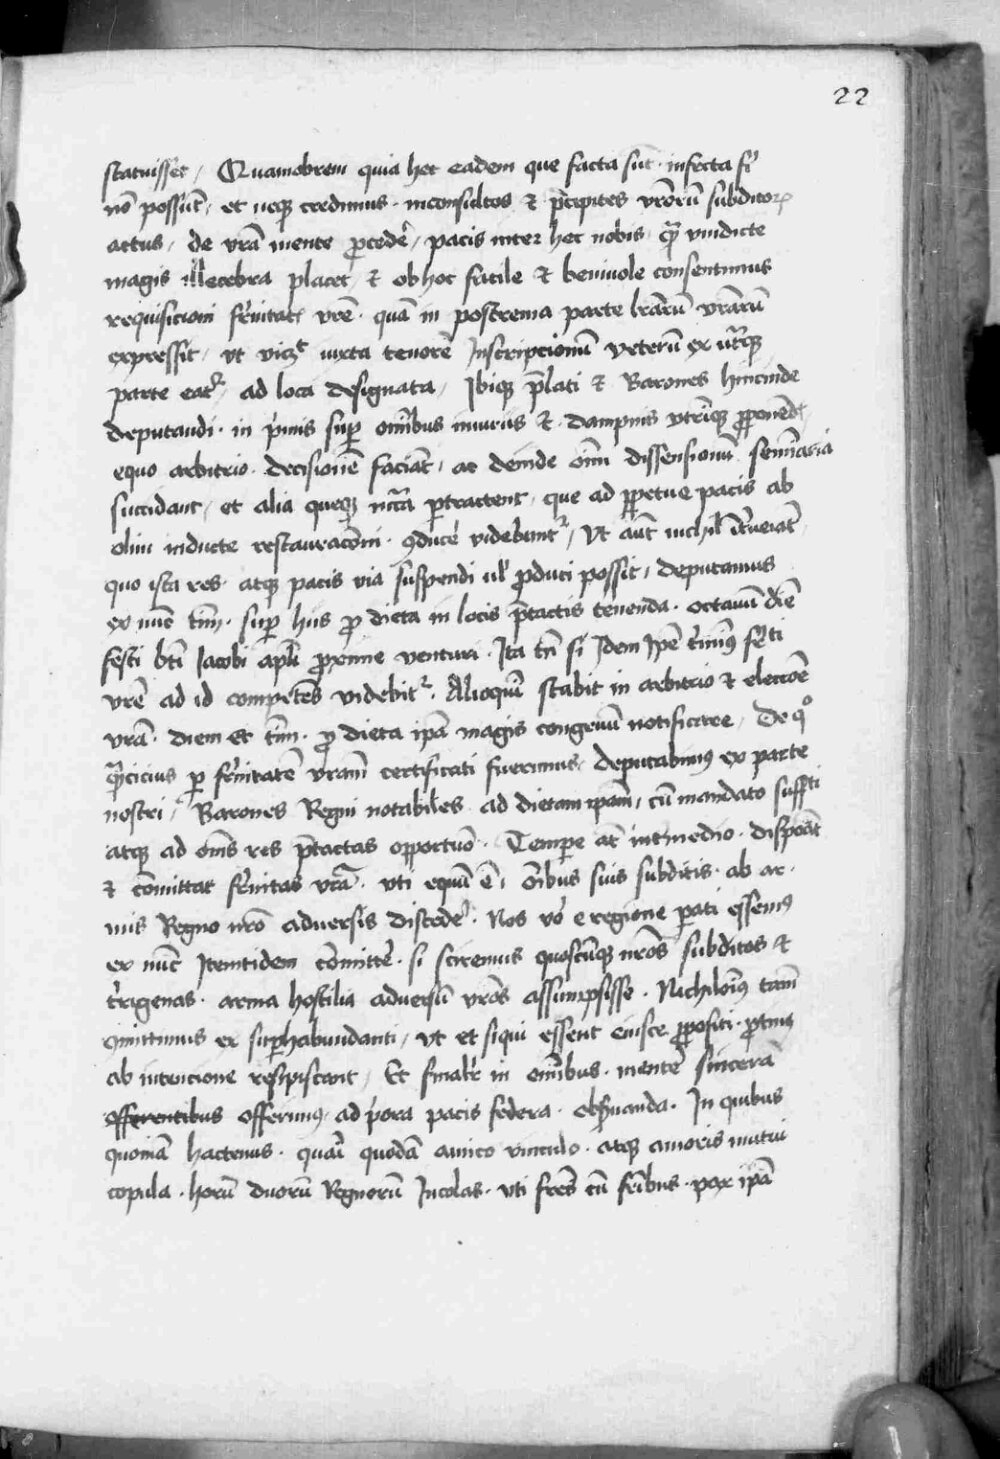 22
statuisset, Quamobrem quia hec eadem que facta sūt · infecta fi͛i
nō possūt, et neqꝫ credimus · inconsultos & p̄cipites vr̄orū subditoꝝ
actus, de vr̄a mente ꝓcede͛, pacis inter hec nobis, qᷓ vindicte
magis illecebra placet, & ob hoc facile & beniuole consentimus
requisicioni fr̄nitat͛ vr̄e · quā in postrema parte lr̄arū vr̄arū
expressit, vt vicꝫᵗ iuxta tenorē Inscripcionū veterū ex utᷓqꝫ
parte ear͛, ad loca designata, Ibiqꝫ p̄lati & Barones hincinde
deputandi · in p͛mis suꝑ om̄ibus iniuriis & dampnis vtrīqꝫ ꝓponēd͛,
equo arbitrio · decisionē faciāt, ac deinde om̄i dissensionū semīaria
succidant, et alia queqꝫ nc̄ia ꝑtractent, que ad ꝑpetue pacis ab
olim inducte restauracōm · ꝯduce͛ videbunt͛, Vt aūt nichil īt͛ueiat̄,
quo ista res · atqꝫ pacis via suspendi ul̄ ꝓduci possit, deputamus
ex nūc t͛m̄ · suꝑ hiis ꝓ dieta in locis p̄tactis tenenda · octauū diē
festi bt̄i Iacobi apl̄i ꝓxime venturi · Ita tn̄ si Idem Ip̄e t͛mīꝰ fr̄ti
vr̄e ad id competēs videbit͛ · Alioquī stabit in arbitrio & elecc̄oē
vr̄a · diem et t͛m̄ · ꝓ dieta ip̄a magis congruū notificare, De qᵒ
qᷓcicius ꝑ fr̄nitatē vram̄ certificati fuerimus, deputabimꝰ ex parte
nostri, Barones Regni notabiles ad dietam ipam̄, cū mandato suffti
atqꝫ ad om̄s res p̄tactas opportuō · Tempe at̄ intmedio · dispoāt
& cōmittat fr̄nitas vr̄a · vti equū ē, ōibus suis subditis · ab ar·
mis Regno nr̄o aduersis discede͛ · Nos vo͛ e regione ꝑati essemꝰ
ex nūc Itemtidem cōmitte͛ · si sciremus quoscūqꝫ nr̄os subditos &
t͛rigenas · arma hostilia aduersū vr̄os assumpsisse · Nichiloīꝰ tam̄
ꝯmittimus ex suꝑhabundanti, vt et siqui essent cuisce ꝓpositi · ꝓtinꝰ
ab intencione resipiscant, Et finalr̄ in om̄ibus · mentē sincerā
offerentibus offerimꝰ, ad p͛ora pacis federa · obs͛uanda · In quibus
quoniā hactenus · quasi quodā amico vinculo · atqꝫ amoris mutui
copula · horū duorū Regnorū Incolas · vti fr̄es cū fr̄ibus · pax ip̄a